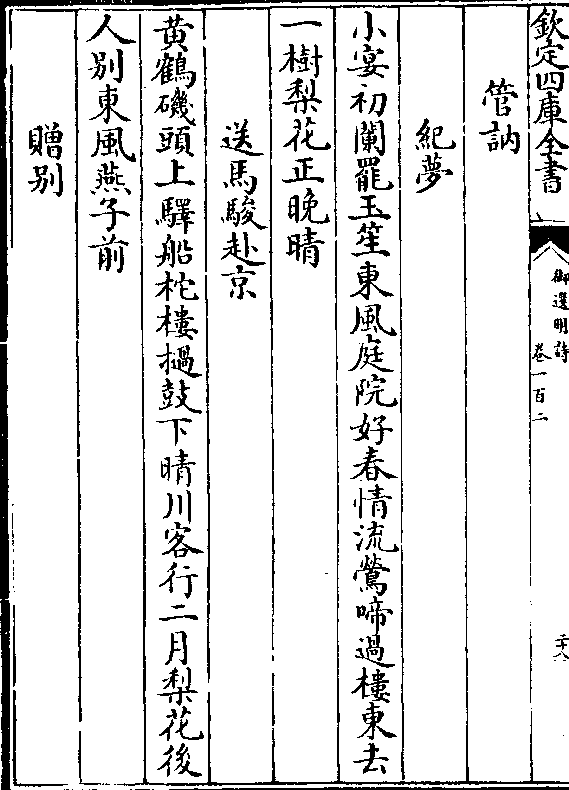 欽定四庫全書
御選明詩
卷一百二
二十八
管訥
紀夢
小宴初闌罷玉笙東風庭院好春情流鶯啼過樓東去
一樹梨花正晚晴
送馬駿赴京
黄鶴磯頭上驛船柁樓撾鼓下晴川客行二月梨花後
人别東風燕子前
贈别